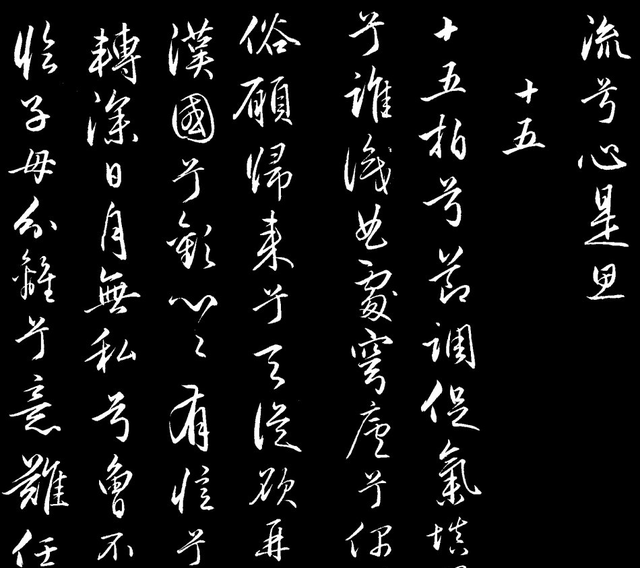 流兮心是思
十五
十五拍兮節調促氣填
兮誰識曲處穹廬兮偶
俗願歸來兮天從欲再
漢國兮歡心〻有憶兮
轉深日月無私兮曾不
臨子母分離兮意難任